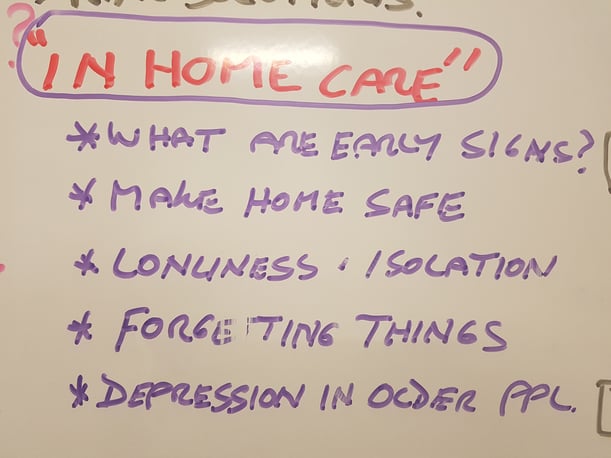 "IN HOME CARE"
*WHAT ARE EARLY SIGNS?
* MAKE HOME SAFE
* LONLINESS · ISOLATION
* FORGETTING THINGS
*DEPRESSION IN OLDER PPL.